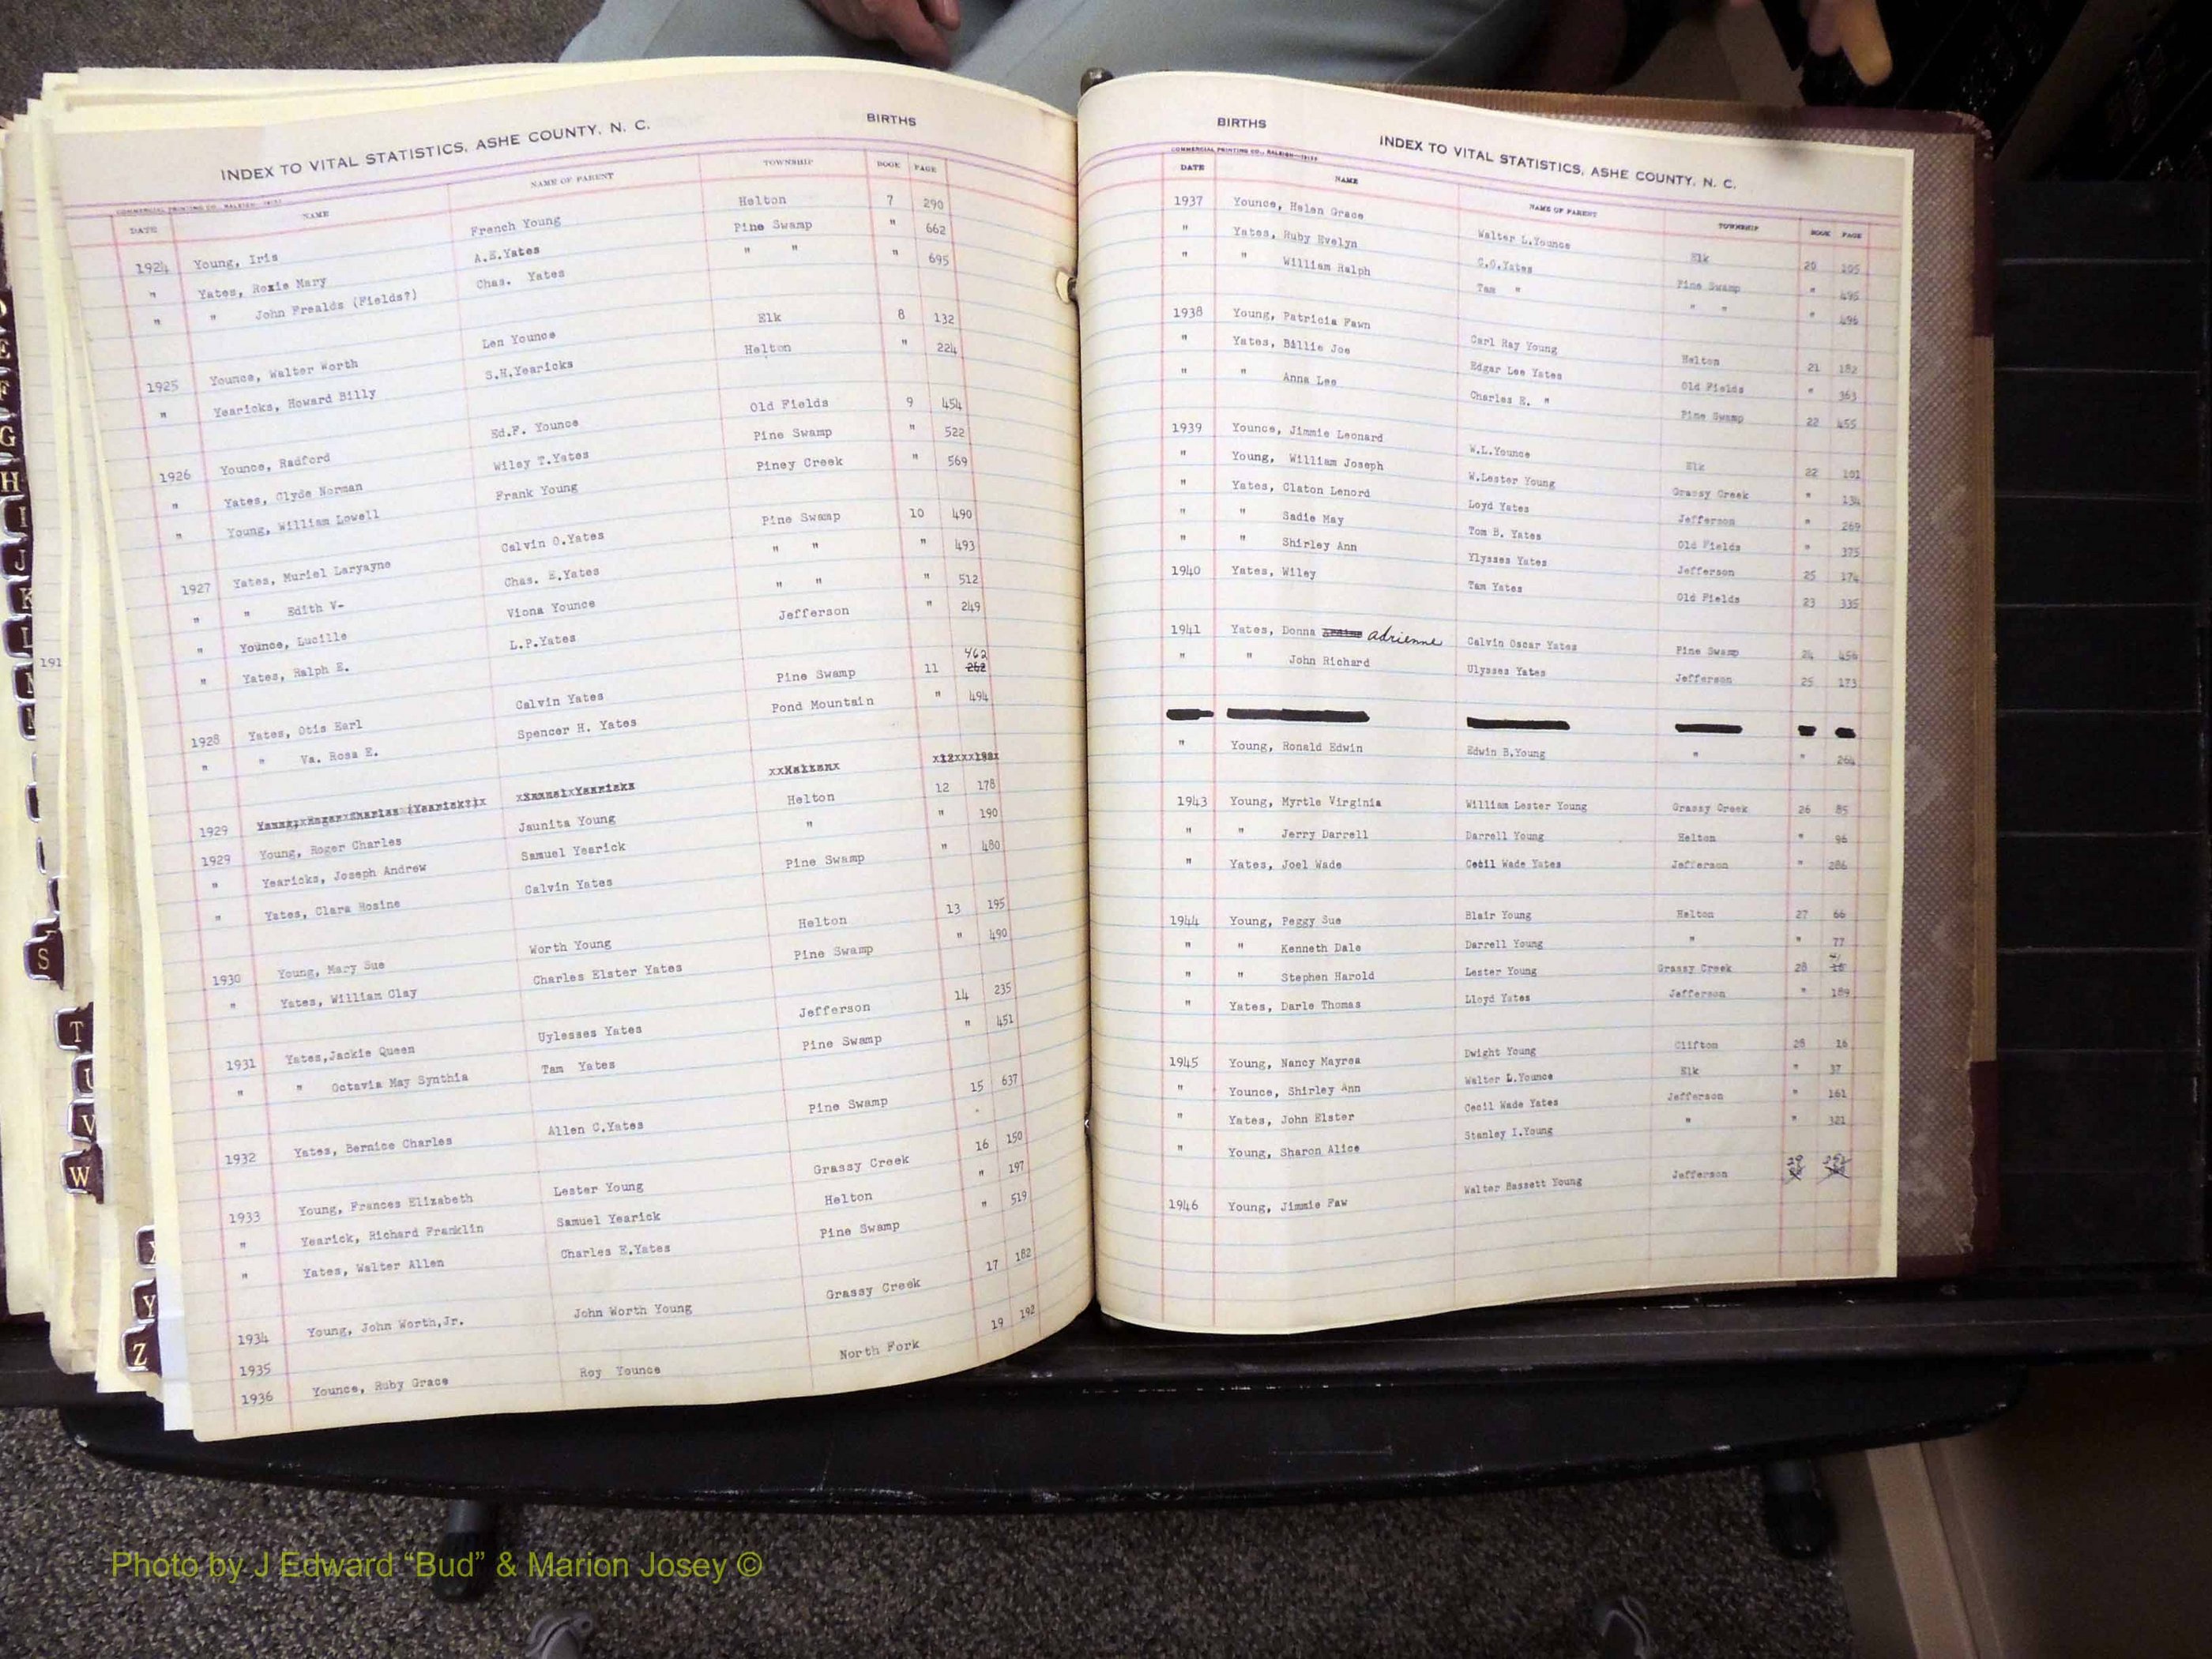 INDEX TO VITAL STATISTICS, ASHE COUNTY, N. C. BIRTHS
COMMERCIAL PRINTING CO., RALEIGH
DATE NAME NAME OF PARENT TOWNSHIP BOOK PAGE
1924 Young, Iris French Young Helton 7 290
" Yates, Roxie Mary A.E.Yates Pine Swamp " 662
" " John Frealds (Fields?) Chas. Yates " " " 695
1925 Younce, Walter Worth Len Younce Elk 8 132
" Yearicks, Howard Billy S.H.Yearicks Helton " 224
1926 Younce, Radford Ed.F. Younce Old Fields 9 454
" Yates, Clyde Norman Wiley T.Yates Pine Swamp " 522
" Young, William Lowell Frank Young Piney Creek " 569
1927 Yates, Muriel Laryayne Calvin O.Yates Pine Swamp 10 490
" " Edith V- Chas. E.Yates " " " 493
" Younce, Lucille Viona Younce " " " 512
" Yates, Ralph E. L.P.Yates Jefferson " 249
1928 Yates, Otis Earl Calvin Yates Pine Swamp 11 262 462
" " Va. Rosa E. Spencer H. Yates Pond Mountain " 494
1929
1929 Young, Roger Charles Jaunita Young Helton 12 178
" Yearicks, Joseph Andrew Samuel Yearick " " 190
" Yates, Clara Rosine Calvin Yates Pine Swamp " 480
1930 Young, Mary Sue Worth Young Helton 13 195
" Yates, William Clay Charles Elster Yates Pine Swamp " 490
1931 Yates,Jackie Queen Uylesses Yates Jefferson 14 235
" " Octavia May Synthia Tam Yates Pine Swamp " 451
1932 Yates, Bernice Charles Allen C.Yates Pine Swamp 15 637
1933 Young, Frances Elizabeth Lester Young Grassy Creek 16 150
" Yearick, Richard Franklin Samuel Yearick Helton " 197
" Yates, Walter Allen Charles E.Yates Pine Swamp " 519
1934 Young, John Worth,Jr. John Worth Young Grassy Creek 17 182
1935
1936 Younce, Ruby Grace Roy Younce North Fork 19 192
BIRTHS INDEX TO VITAL STATISTICS, ASHE COUNTY, N. C.
COMMERCIAL PRINTING CO., RALEIGH
DATE NAME NAME OF PARENT TOWNSHIP BOOK PAGE
1937 Younce, Helen Grace Walter L.Younce Elk 20 105
" Yates, Ruby Evelyn C.O.Yates Pine Swamp " 495
" " William Ralph Tam " " " " 496
1938 Young, Patricia Fawn Carl Ray Young Helton 21 182
" Yates, Billie Joe Edgar Lee Yates Old Fields " 363
" " Anna Lee Charles E. " Pine Swamp 22 455
1939 Younce, Jimmie Leonard W.L.Younce Elk 22 101
" Young, William Joseph W.Lester Young Grassy Creek " 134
" Yates, Claton Lenord Loyd Yates Jefferson " 269
" " Sadie May Tom B. Yates Old Fields " 375
" " Shirley Ann Ylysses Yates Jefferson 25 174
1940 Yates, Wiley Tam Yates Old Fields 23 335
1941 Yates, Donna adrienne Calvin Oscar Yates Pine Swamp 24 456
" " John Richard Ulysses Yates Jefferson 25 173
" Young, Ronald Edwin Edwin B.Young " " 264
1943 Young, Myrtle Virginia William Lester Young Grassy Creek 26 85
" " Jerry Darrell Darrell Young Helton " 96
" Yates, Joel Wade Cecil Wade Yates Jefferson " 286
1944 Young, Peggy Sue Blair Young Helton 27 66
" " Kenneth Dale Darrell Young " " 77
" " Stephen Harold Lester Young Grassy Creek 28
" Yates, Darle Thomas Lloyd Yates Jefferson " 189
1945 Young, Nancy Mayrea Dwight Young Clifton 28 16
" Younce, Shirley Ann Walter L.Younce Elk " 37
" Yates, John Elster Cecil Wade Yates Jefferson " 161
" Young, Sharon Alice Stanley I.Young " " 321
1946 Young, Jimmie Faw Walter Bassett Young Jefferson 29
191
E
F
G
H
I
J
K
L
S
T
U
V
W
Y
Z
Photo by J Edward “Bud” & Marion Josey ©